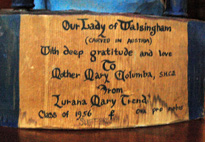 Our Lady of Walsingham
(CARVED IN AUSTRIA)
With deep gratitude and love
To
Mother Mary Columba, S.H.C.J.
From
Lurana Mary Trend
Class of 1956